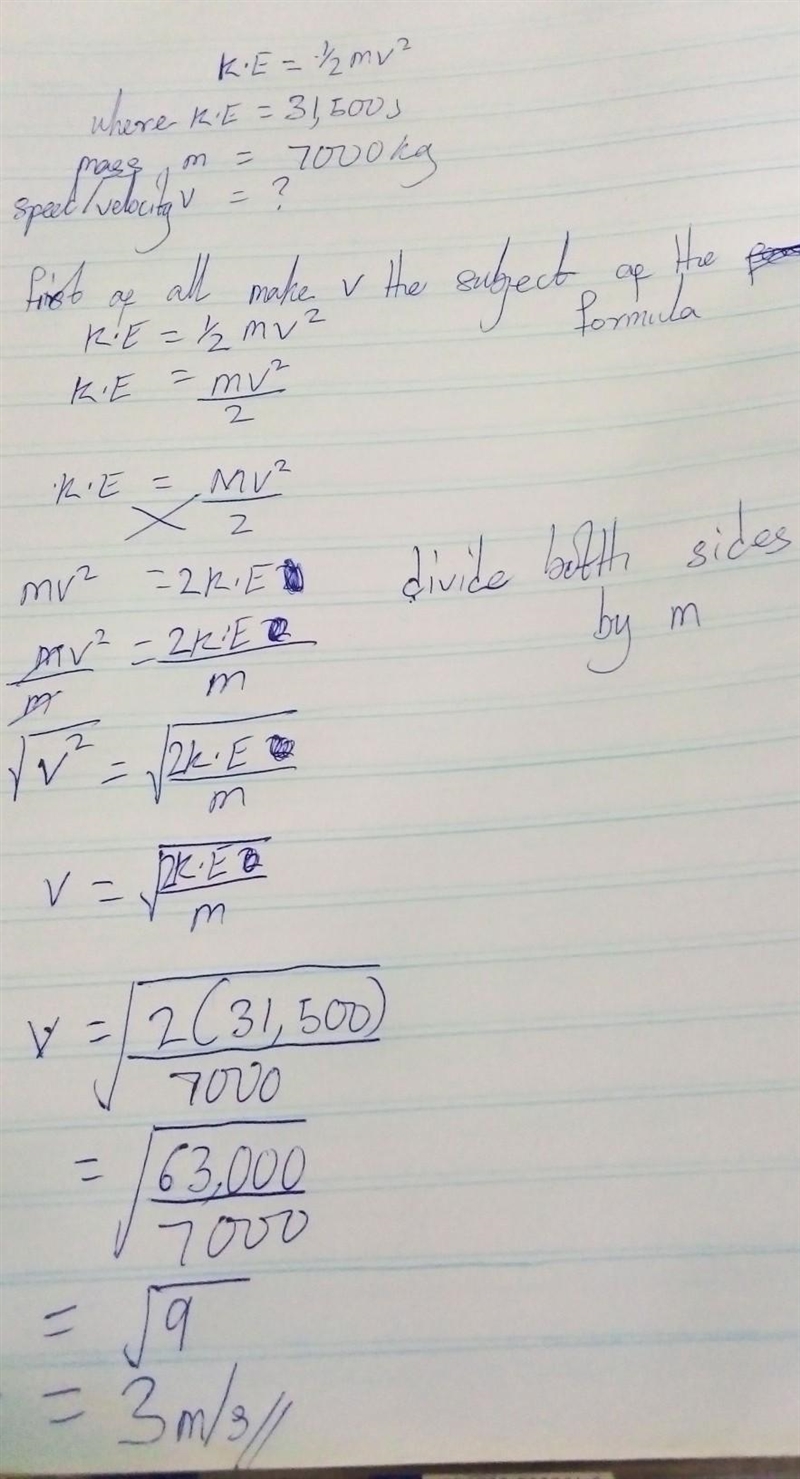 K.E = 1/2 mv²
where K.E = 31,500J
mass, m = 7000kg
speed/velocity v = ?
first of all make v the subject of the
formula
K.E = 1/2 mv²
K.E = mv²/2
K.E = mv²/2
mv² = 2K.E divide both sides
by m
mv²/m = 2K.E/m
√v² = √2K.E/m
v = √2K.E/m
v = √2(31,500)/7000
= √63,000/7000
= √9
= 3m/s//